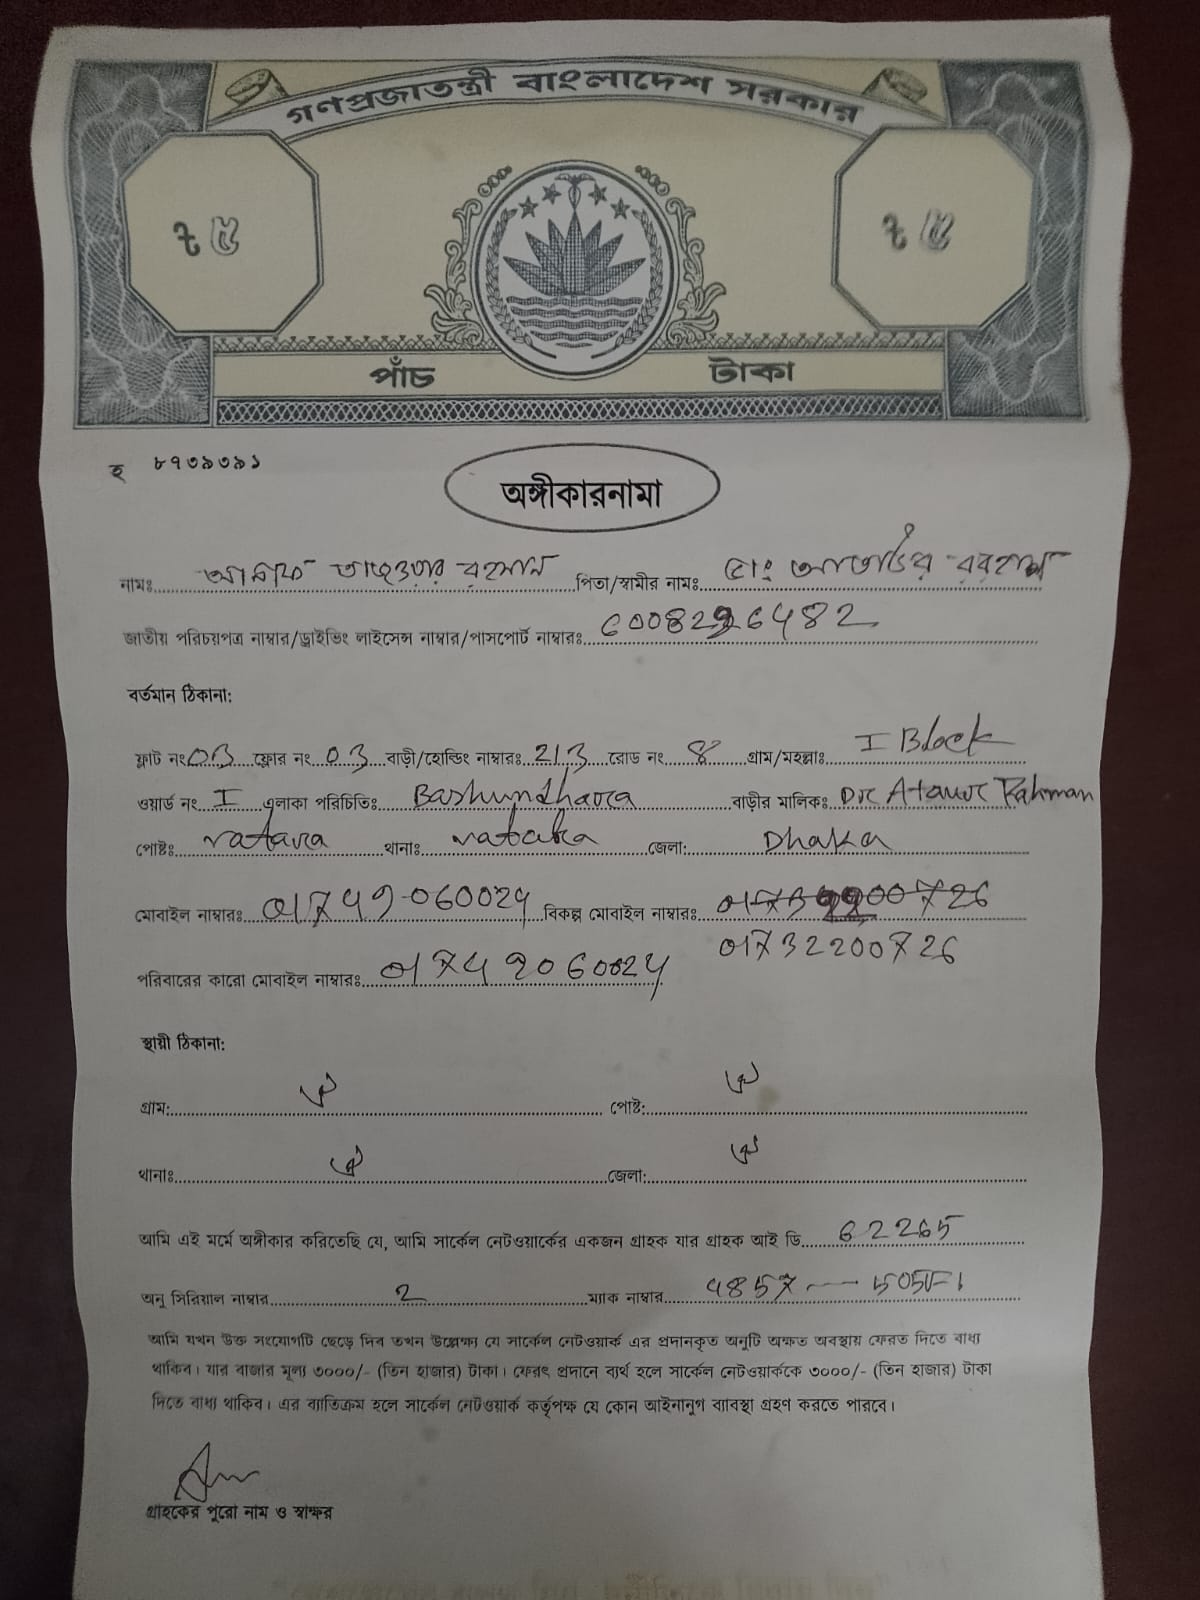 গণপ্রজাতন্ত্রী বাংলাদেশ সরকার
৳ ৫ ৳ ৫
পাঁচ টাকা
হ ৮৭৩৯৩৯১
অঙ্গীকারনামা
নামঃ তাহওয়ার রহমান পিতা/স্বামীর নামঃ মোঃ আতাউর রহমান
জাতীয় পরিচয়পত্র নাম্বার/ড্রাইভিং লাইসেন্স নাম্বার/পাসপোর্ট নাম্বারঃ
বর্তমান ঠিকানা:
ফ্লাট নং 03 ফ্লোর নং 03 বাড়ী/হোল্ডিং নাম্বারঃ 213 রোড নং 8 গ্রাম/মহল্লাঃ I Block
ওয়ার্ড নং I এলাকা পরিচিতিঃ Bashundhara বাড়ীর মালিকঃ Dr Ataur Rahman
পোষ্টঃ vatara থানাঃ vatara জেলা: Dhaka
মোবাইল নাম্বারঃ 01749060024 বিকল্প মোবাইল নাম্বারঃ
01732200726
পরিবারের কারো মোবাইল নাম্বারঃ 01749060024
স্থায়ী ঠিকানা:
গ্রাম: ঐ পোষ্ট: ঐ
থানাঃ ঐ জেলা: ঐ
আমি এই মর্মে অঙ্গীকার করিতেছি যে, আমি সার্কেল নেটওয়ার্কের একজন গ্রাহক যার গ্রাহক আই ডি 62265
অনু সিরিয়াল নাম্বার 2 ম্যাক নাম্বার 4857 — 505F1
আমি যখন উক্ত সংযোগটি ছেড়ে দিব তখন উল্লেক্ষা যে সার্কেল নেটওয়ার্ক এর প্রদানকৃত অনুটি অক্ষত অবস্থায় ফেরত দিতে বাধ্য
থাকিব। যার বাজার মূল্য ৩০০০/- (তিন হাজার) টাকা। ফেরৎ প্রদানে ব্যর্থ হলে সার্কেল নেটওয়ার্ককে ৩০০০/- (তিন হাজার) টাকা
দিতে বাধ্য থাকিব। এর ব্যাতিক্রম হলে সার্কেল নেটওয়ার্ক কর্তৃপক্ষ যে কোন আইনানুগ ব্যাবস্থা গ্রহণ করতে পারবে।
গ্রাহকের পুরো নাম ও স্বাক্ষর